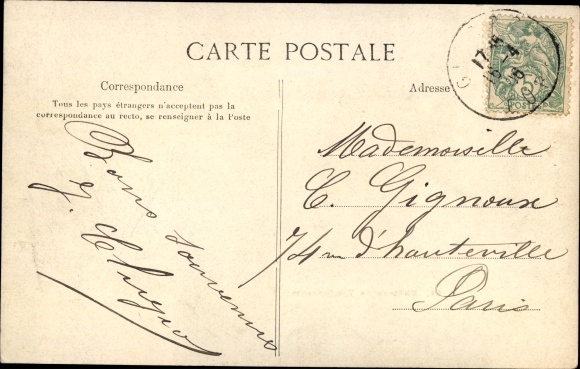 CARTE POSTALE
Correspondance
Tous les pays étrangers n'acceptent pas la
correspondance au recto, se renseigner à la Poste
Bons souvenirs
Adresse
Mademoiselle
C. Gignoux
74 rue d'hauteville
Paris
17
5
POSTES